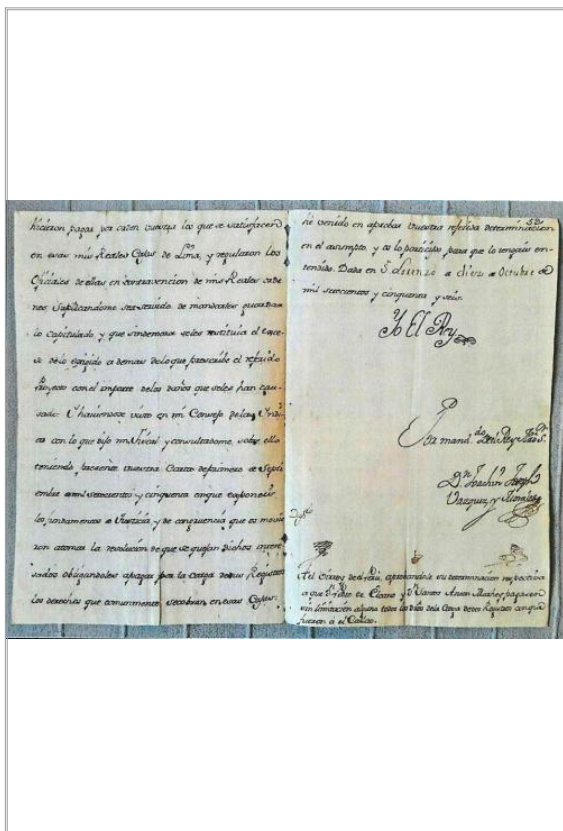 hicieron pagar por orden vuestra los que se satisfacen
en esas mis Reales Cajas de Lima, y regularon los
Oficiales de ellas en contravencion de mis Reales orde
nes; Suplicandome sea servido de mandar les guardara
lo Capitulado, y que sin demora se les restituia el exce
so de lo exigido a demas de lo que prescribe el referido
Proyecto con el importe de los daños que se les han cau
sado. Y haviendose visto en mi Consejo de las Yndi
as con lo que dijo mi Fiscal y consultadome sobre ello
teniendo presente vuestra Carta de primero de Septi
embre de mil setecientos y cinquenta en que exponeis
los fundamentos de Justicia y de congruencia que os movie
ron a tomar la resolucion de que se quejan dichos intere
sados obligandoles a pagar por la carga de sus Registros
los derechos que comunmente se cobran en esas Cajas:
hé venido en aprobar vuestra referida determinacion
en el asumpto, y os lo participo para que lo tengais en
tendido. Dada en Sn. Lorenzo a diez de Octubre de
mil setecientos y cinquenta y seis.
Yo El Rey
Por mand.do del Rey Nro. S.or
Dn. Joachin Joseph
Vazquez y Morales
Al Virrey del Perú, aprobandole su determinacion respectiva
a que
sin limitacion alguna todos los dros de la Carga de los Registros con que
fueron a el Callao.